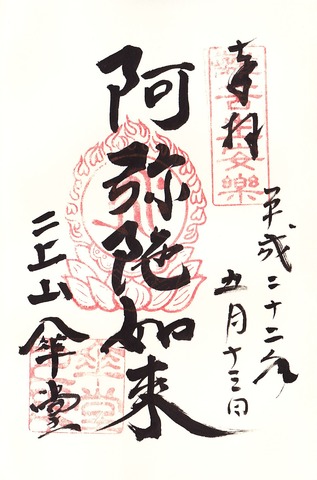 奉拝
平成二十二年
五月十三日
阿弥陀如来
二上山
傘堂